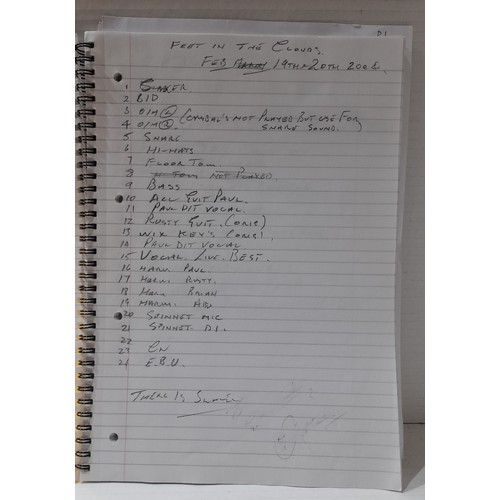 P1
FEET IN THE CLOUDS
FEB 19TH-20TH 200
1 SHAKER
2 B/D
3 O/H (CYMBAL'S NOT PLAYED BUT USE FOR
4 O/H SNARE SOUND.
5 SNARE
6 HI-HATS
7 FLOOR TOM.
8 TOM NOT PLAYED
9 BASS
10 ACC GUIT PAUL.
11 PAUL DIT VOCAL.
12 RUSTY GUIT. (ORIG)
13 WIX KEY'S (ORIG).
14 PAUL DIT VOCAL
15 VOCAL. LIVE. BEST.
16 HARM. PAUL.
17 HARM. RUSTY.
18 HARM BRIAN
19 HARM. ABE
20 SPINNET MIC
21 SPINNET. DI.
22
23
24 E.B.U.
THERE IS